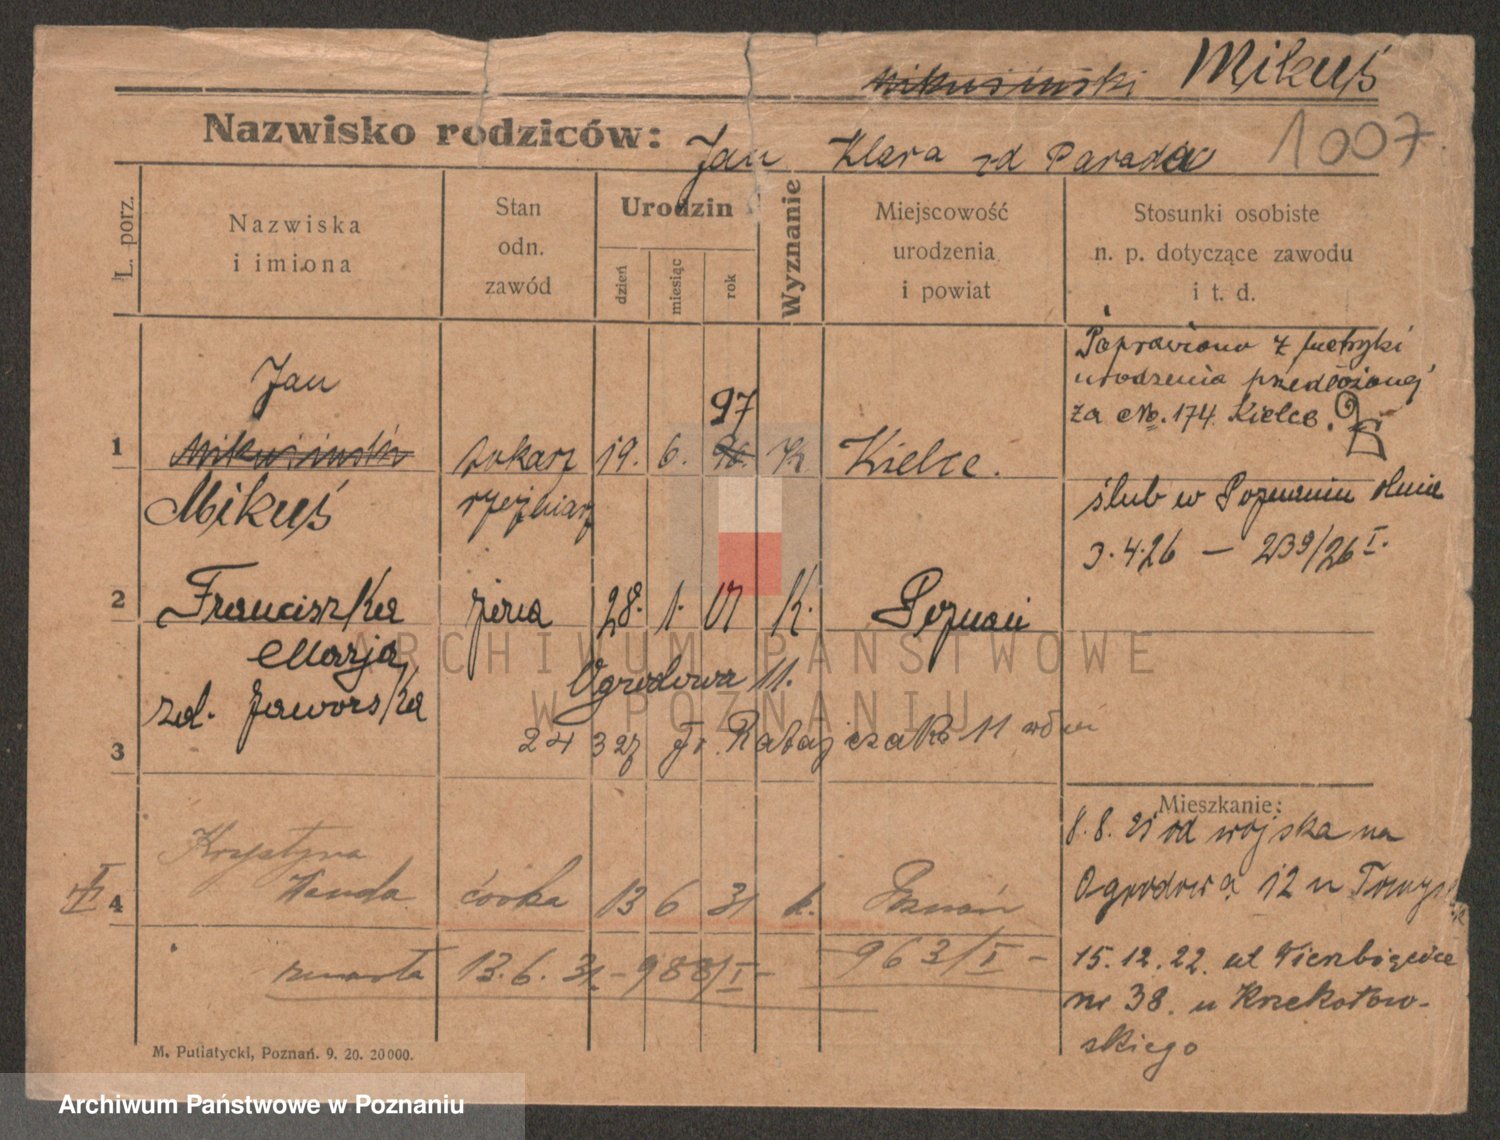 Mikusiński Mikuś
Nazwisko rodziców: Jan Klara zd Parada
1007
L. porz.
Nazwiska
i imiona
Stan
odn.
zawód
Urodzin
dzień
miesiąc
rok
Wyznanie
Miejscowość
urodzenia
i powiat
Stosunki osobiste
n. p. dotyczące zawodu
i t. d.
Poprawiono z metryki
urodzenia przedłożonej
za No. 174 Kielce.
Jan
97
1 Mikusiński tokarz 19. 6. 96. K Kielce.
Mikuś rzeźbiarz
ślub w Poznaniu dnia
3.4.26 — 239/26 I.
2 Franciszka żona 28. 1. 01 K. Poznań
Marja
zd. Jaworska
Ogrodowa 11.
24 3 27 Fr. Ratajczaka 11
3
Mieszkanie:
8.8.21 od wojska na
Ogrodowa 12 u
Krystyna
I
4 Wanda córka 13 6 31 k. Poznań
963/I -
zmarła 13.6.31. - 988/I -
15.12.22. ul Wierzbięcice
nr 38. u Krzekotow-
skiego
M. Putiatycki, Poznań. 9. 20. 20000.
ARCHIWUM PAŃSTWOWE
W POZNANIU
Archiwum Państwowe w Poznaniu